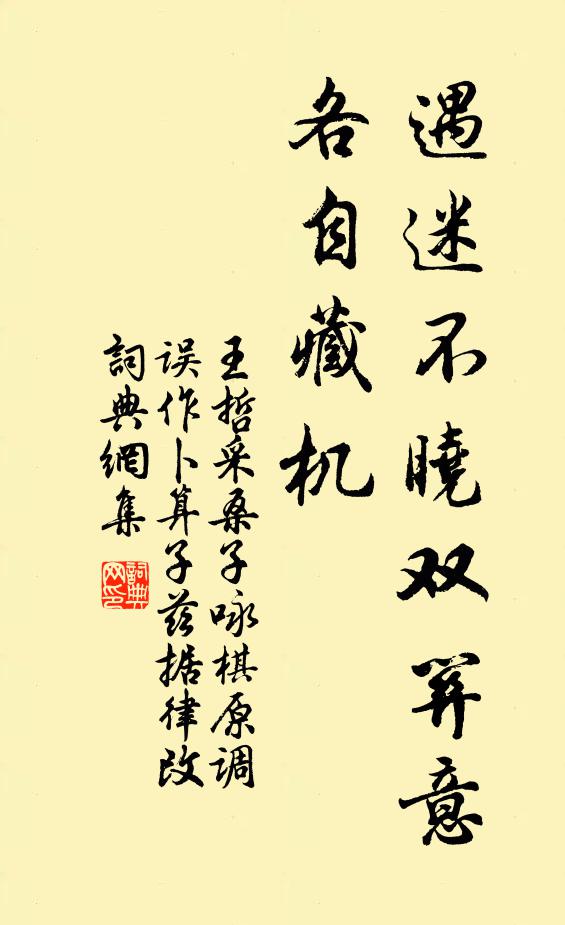 遇迷不曉双关意
各自藏机
王哲采桑子咏棋原调
误作卜算子兹据律改
詞典網集
詞典网印